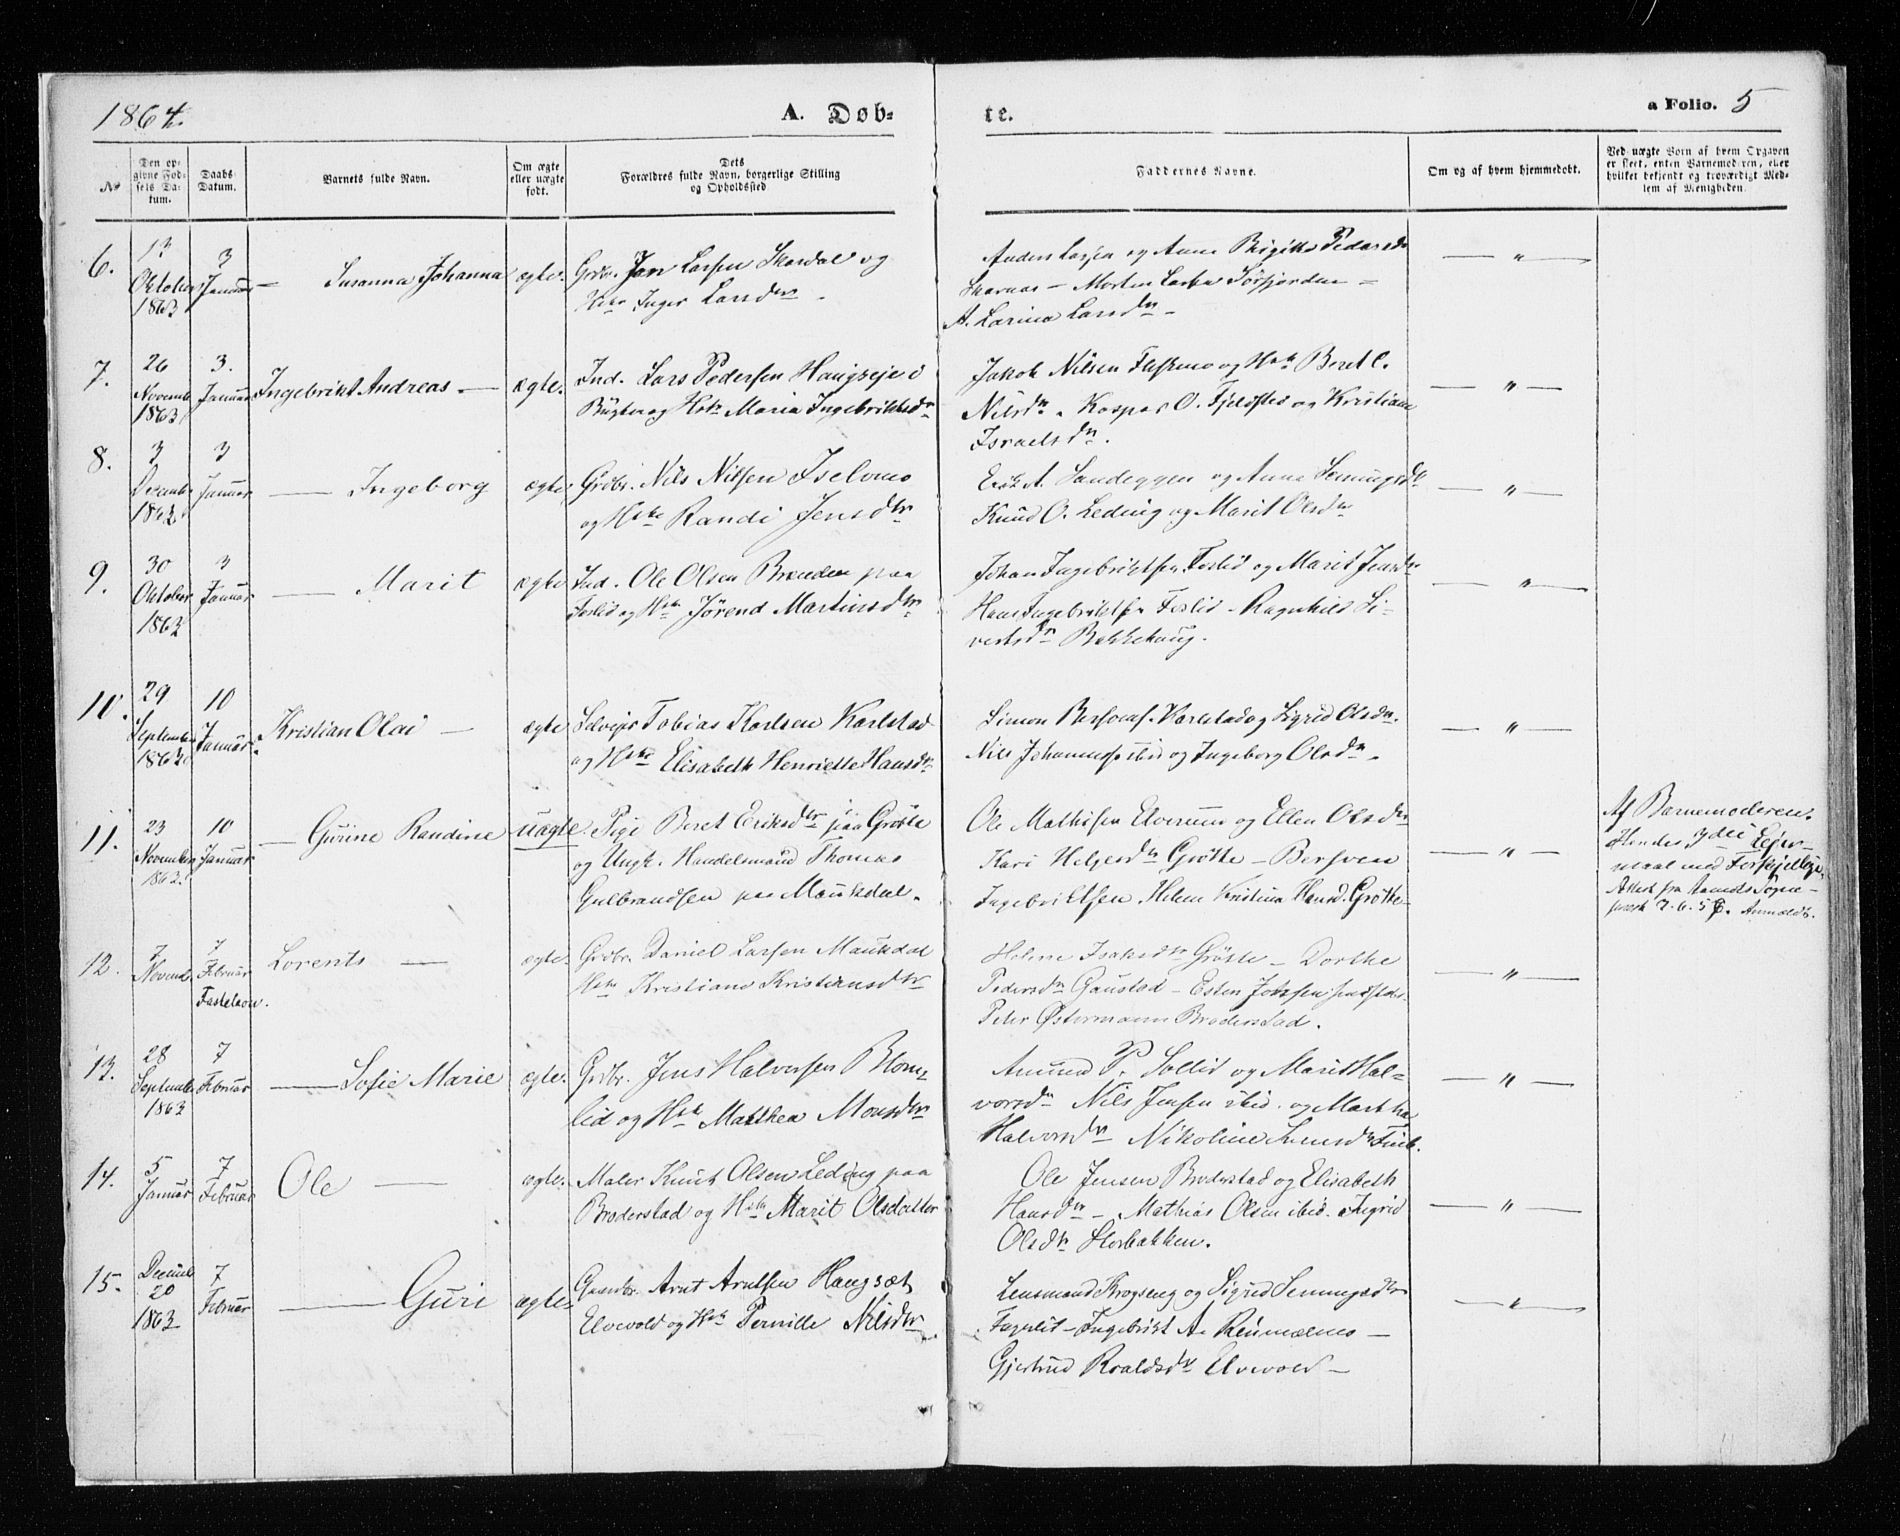 1864.
A. Døb-
te.
a Folio. 5
No
Den opgivne Fødsels Datum.
Daabs Datum.
Barnets fulde Navn.
Om ægte eller uægte født.
Dets Forældres fulde Navn, borgerlige Stilling og Opholdssted
Faddernes Navne.
Om og af hvem hjemmedøbt.
Ved uægte Børn af hvem Opgaven er skeet, enten Barnemoderen, eller hvilket bekjendt og troværdigt Medlem af Menigheden.
6.
13 Oktober 1863
3 Januar
Susanna Johanna
ægte.
Grdbr. Jan Larsen Skardal og
Hste Inger Larsdtr
Anders Larsen og Anne Birgitte Pedersdtr
Skarnæs - Morten Larsen Sørfjorden -
A. Larina Larsdtr -
— " —
7.
26 Novembr 1863
3. Januar
Ingebrikt Andreas
ægte.
Ind. Lars Pedersen Haugseje i
og Hste Maria Ingebriktsdtr
Jakob Nilsen og Hste Beret C.
Nilsdtr. Kaspar O. Fjeldsted og Kristiane
Israelsdtr.
— " —
8.
3 December 1863
3 Januar
Ingeborg
ægte
Grdbr. Nils Nilsen Iselvmo
og Hste Randi Jensdtr
Erik A. Sandeggen og Anna Semingsdtr
Knud O. Leding og Marit Olsdtr
— " —
9.
30 Oktober 1863
3 Januar
Marit
ægte
Ind. Ole Olsen Brænden paa
Foslid og Hste Jørend Martinsdtr
Johan Ingebriktsen Foslid og Marit Jensdtr
Hans Ingebriktsn Foslid - Ragnhild Si-
vertsdtr Bakkehaug.
— " —
10.
29 September 1863
10 Januar.
Kristian Olai
ægte
Selvejer Tobias Karlsen Karlstad
og Hste Elisabeth Henriette Hansdtr
Simon Karlstad og Sigrid Olsdtr.
Nils Johannessen ibid og Ingeborg Olsdtr.
— " —
11.
23 November 1863.
10 Januar
Gurine Randine
uægte.
Pige Beret Eriksdtr paa Grøtte
og Ungk. Handelsmand Thomas
Gulbrandsen paa Maukdal.
Ole Mathisen Elverum og Ellen Olsdtr
Kari Helgesdtr Grøtte - Bersven
Ingebriktsen. Helene Kristina Hansd. Grøtte
— " —
Af Barnemoderen.
Hendes 3die Lejer-
maal med Forskjellige.
Attest fra Sogne-
præst 7.6.58. Anmeldt.
12.
7 Novemb.
7 Februar Fastelavn.
Lorents
ægte.
Grdbr. Daniel Larsen Maukdal
Hste Kristiane Kristiansdtr
Helene Isaksdtr Grøtte - Dorthe
Pedersdtr Gaustad - Esten
Peter Østermann Broderstad.
— " —
13.
28 September 1863
7 Februar
Sofie Marie
ægte.
Grdbr. Jens Halvorsen Blom-
lid og Hste Mathea Monsdtr
Amund P. Sollid og Marit Hal-
vorsdtr Nils Jensen ibid. og Martha
Halvorsdtr Nikoline
— " —
14.
5 Januar
7 Februar
Ole
ægte.
Maler Knut Olsen Leding paa
Broderstad og Hste Marit Olsdatter
Ole Jensen Broderstad og Elisabeth
Hansdtr - Mathias Olsen ibid. Sigrid
Olsdtr Storbakken.
— " —
15.
Decemb. 20 1863
7 Februar
Guri
ægte
Gaardbr. Arnt Arntsen Haugsæt
Elvevold og Hste Pernille Nilsdtr
Lensmand Krogseng og Sigrid Semmingsdtr
Fagerlid - Ingebrikt A.
Gjertrud Roaldsdtr Elvevold -
— " —